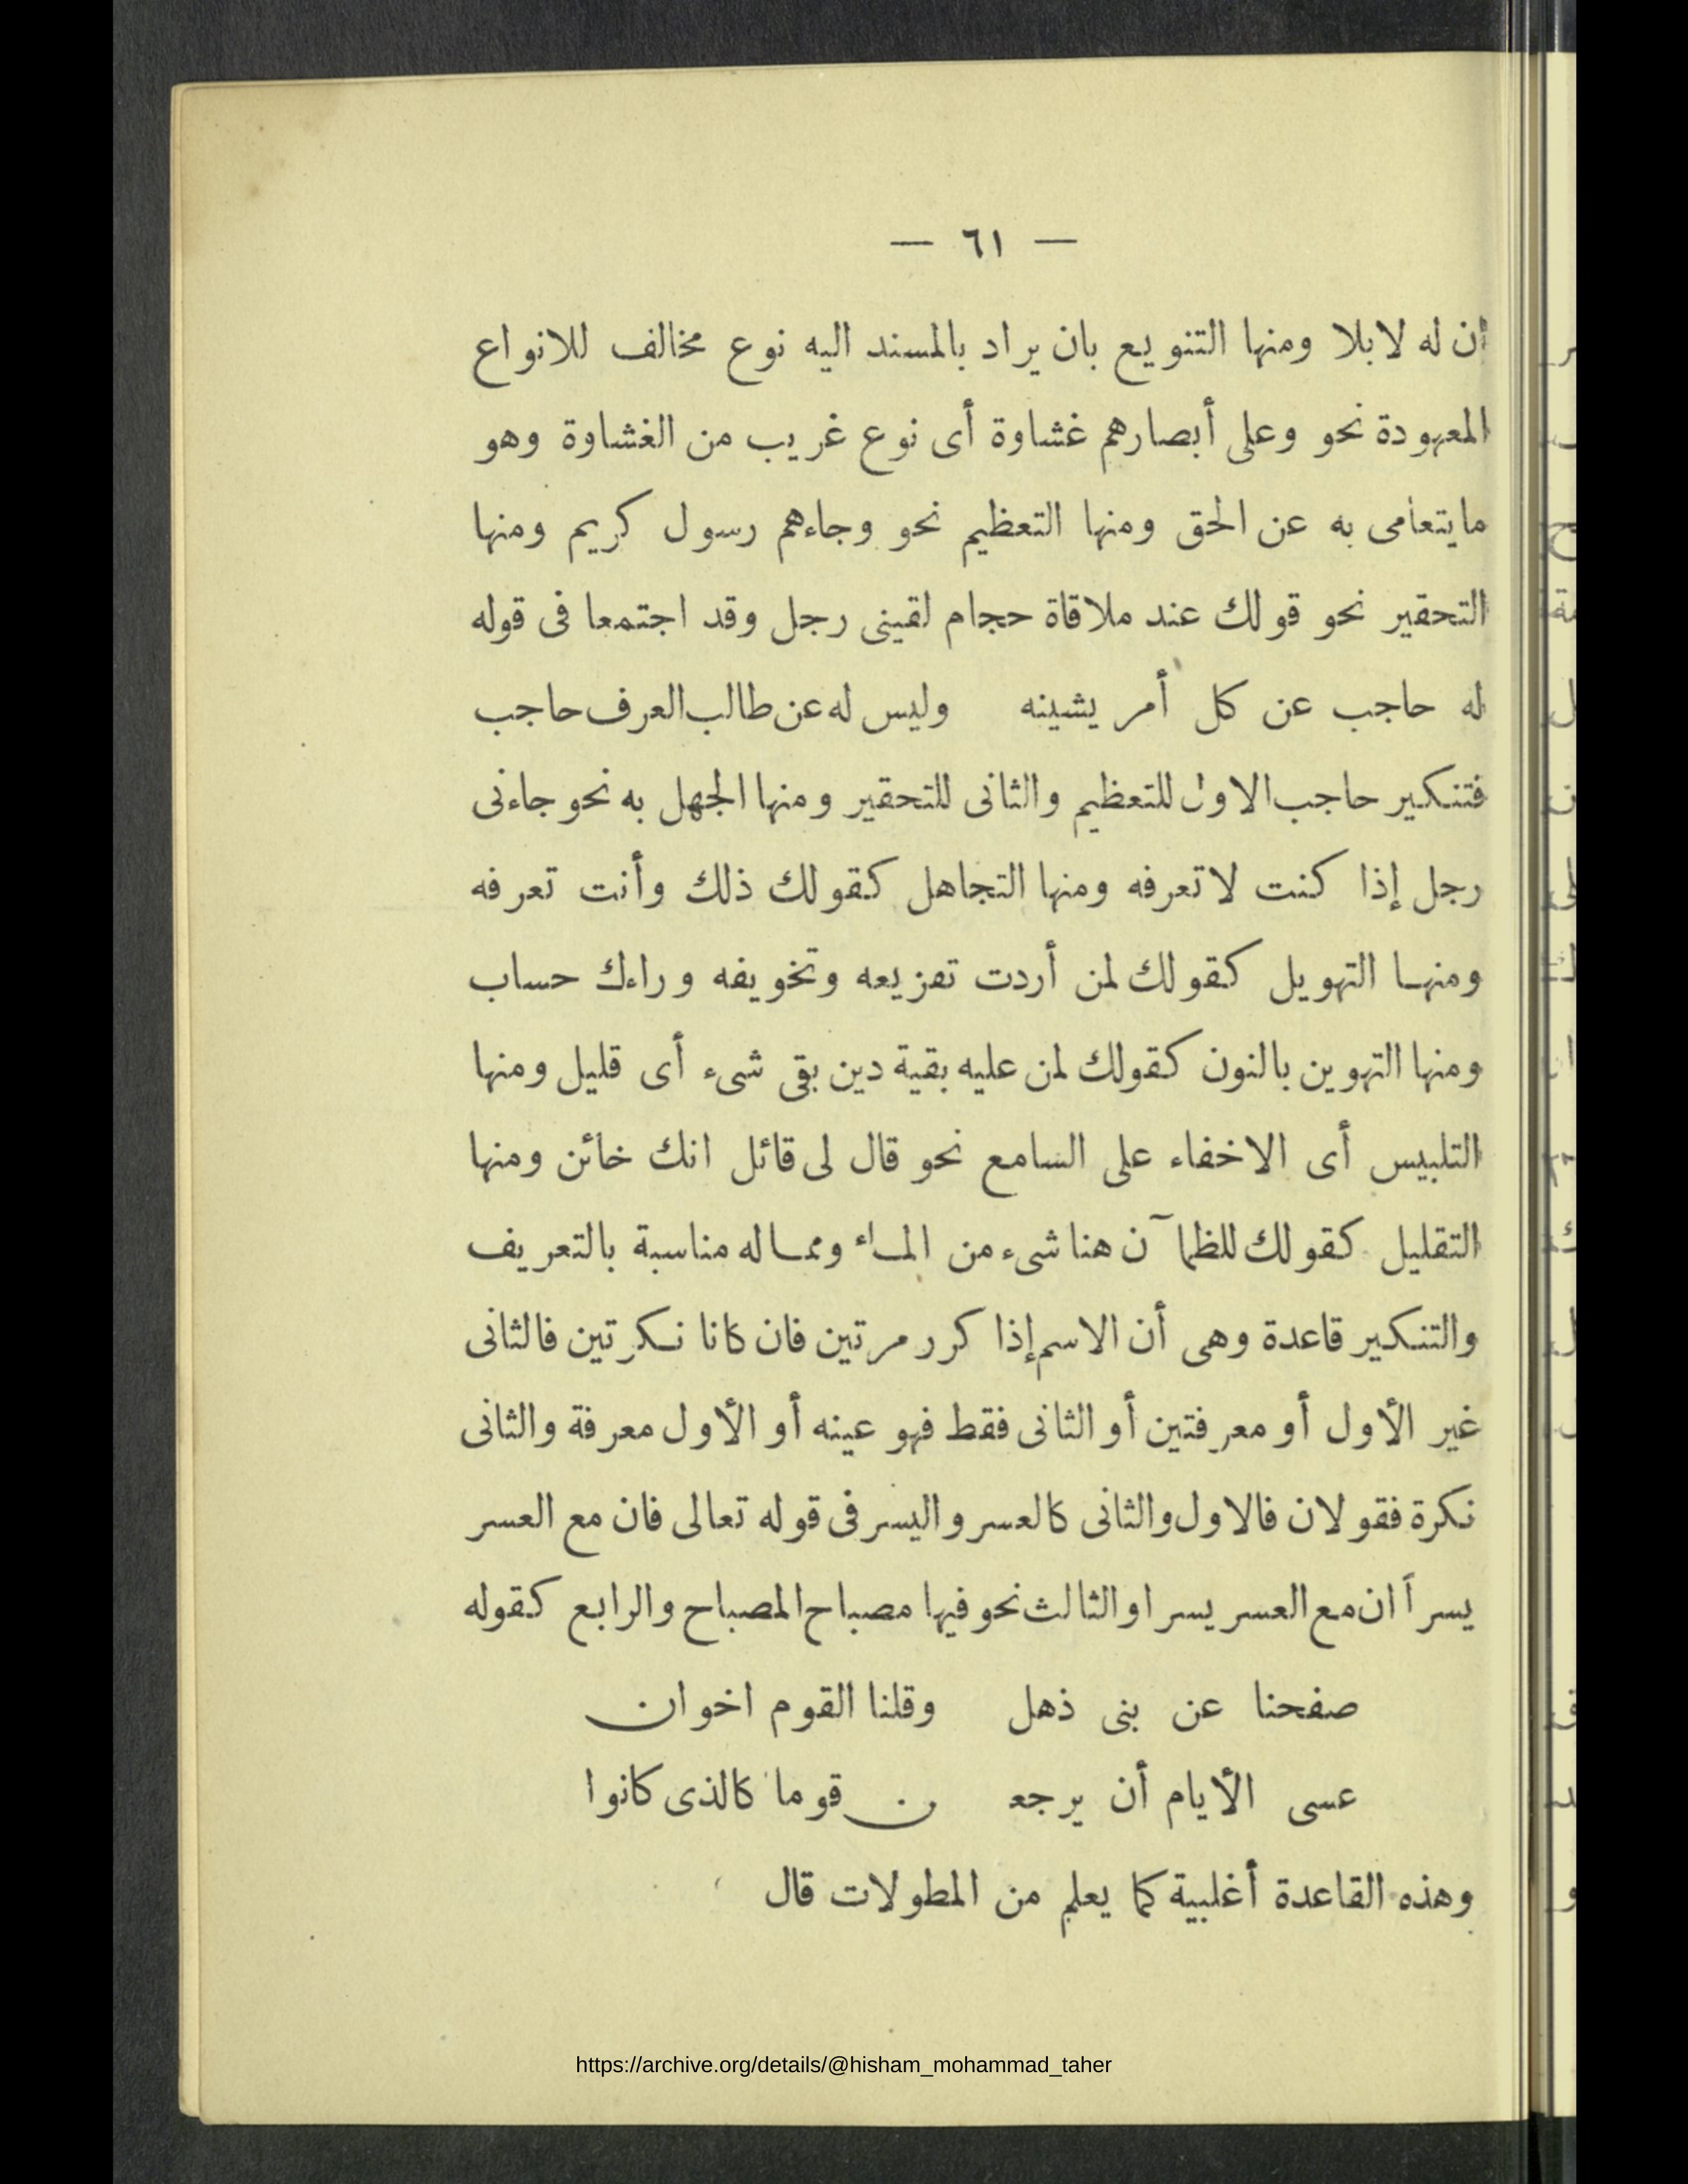 — ٦١ —
أن له لابلا ومنها التنويع بان يراد بالمسند اليه نوع مخالف للانواع
المعهودة نحو وعلى أبصارهم غشاوة أى نوع غريب من الغشاوة وهو
مايتعامى به عن الحق ومنها التعظيم نحو وجاءهم رسول كريم ومنها
التحقير نحو قولك عند ملاقاة حجام لقينى رجل وقد اجتمعا فى قوله
له حاجب عن كل أمر يشينه وليس له عن طالب العرف حاجب
فتنكير حاجب الاول للتعظيم والثانى للتحقير ومنها الجهل به نحو جاءنى
رجل إذا كنت لاتعرفه ومنها التجاهل كقولك ذلك وأنت تعرفه
ومنها التهويل كقولك لمن أردت تفزيعه وتخويفه وراءك حساب
ومنها التهوين بالنون كقولك لمن عليه بقية دين بقى شىء أى قليل ومنها
التلبيس أى الاخفاء على السامع نحو قال لى قائل انك خائن ومنها
التقليل كقولك للظمآن هنا شىء من الماء ومماله مناسبة بالتعريف
والتنكير قاعدة وهى أن الاسم إذا كرر مرتين فان كانا نكرتين فالثانى
غير الأول أو معرفتين أو الثانى فقط فهو عينه أو الأول معرفة والثانى
نكرة فقولان فالاول والثانى كالعسر واليسر فى قوله تعالى فان مع العسر
يسراً ان مع العسر يسرا والثالث نحو فيها مصباح المصباح والرابع كقوله
صفحنا عن بنى ذهل وقلنا القوم اخوان
عسى الأيام أن يرجعـ ـن قوما كالذى كانوا
وهذه القاعدة أغلبية كما يعلم من المطولات قال
https://archive.org/details/@hisham_mohammad_taher